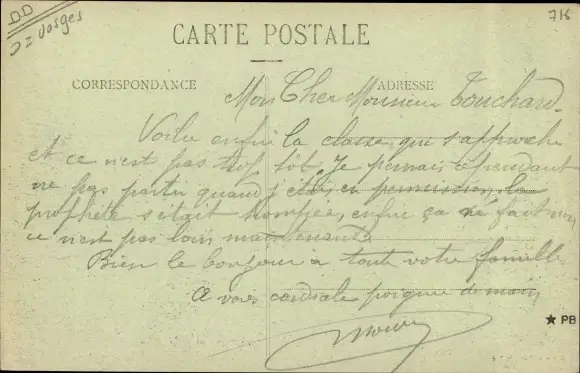 DD
7=Vosges
716
CARTE POSTALE
CORRESPONDANCE
ADRESSE
Mon Cher Monsieur Touchard.
Voilà enfin la classe qui s'approche
et ce n'est pas trop tôt. Je pensais cependant
ne pas partir quand j'étais en permission, le
prophète s'était trompée, enfin ça né fait rien
ce n'est pas loin maintenant
Bien le bonjour à toute votre famille
A vous cordiale poignée de main
★ PB